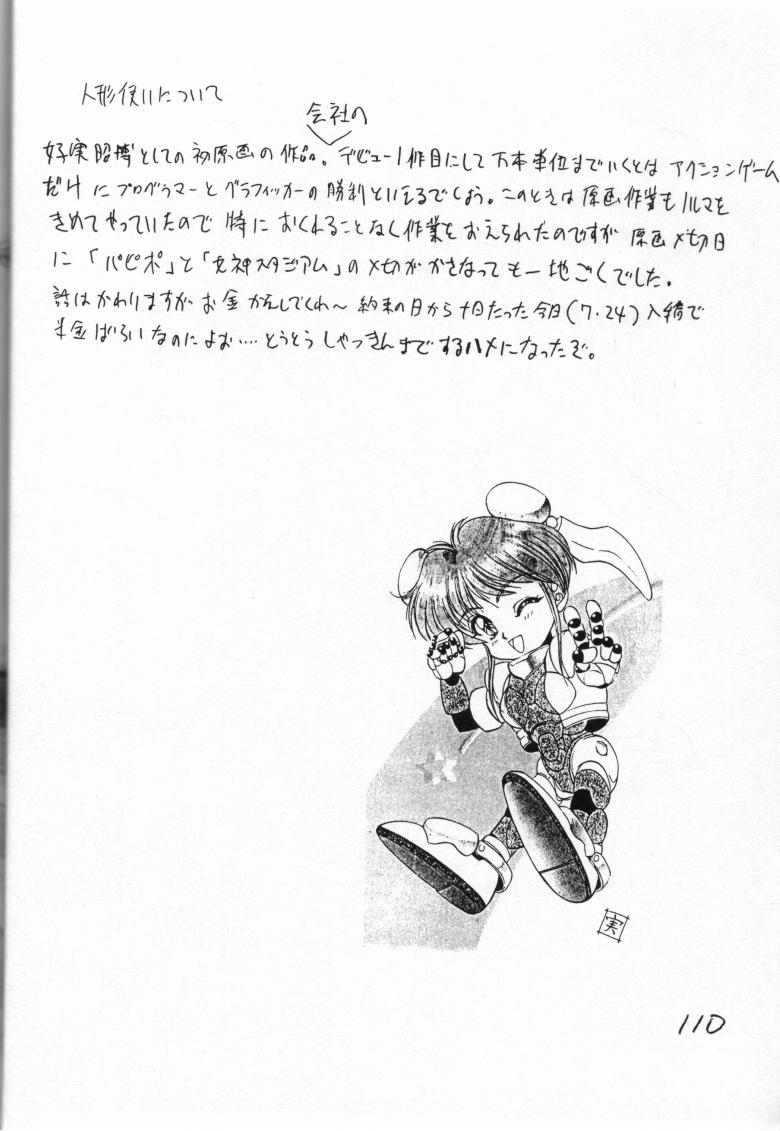 人形使いについて
会社の
好実昭博としての初原画の作品。デビュー1作目にして万本単位までいくとは アクションゲーム
だけにプログラマーとグラフィッカーの勝利といえるでしょう。このときは原画作業もノルマを
きめてやっていたので 特におくれることなく作業をおえられたのですが 原画〆切日
に「パピポ」と「女神スタジアム」の〆切がかさなっても一地ごくでした。
話はかわりますがお金かえしてくれ〜 約束の日から十日たった今日(7・24)入稿で
半金ばらいなのによお‥‥とうとうしゃっきんまでするハメになったぞ。
実
110